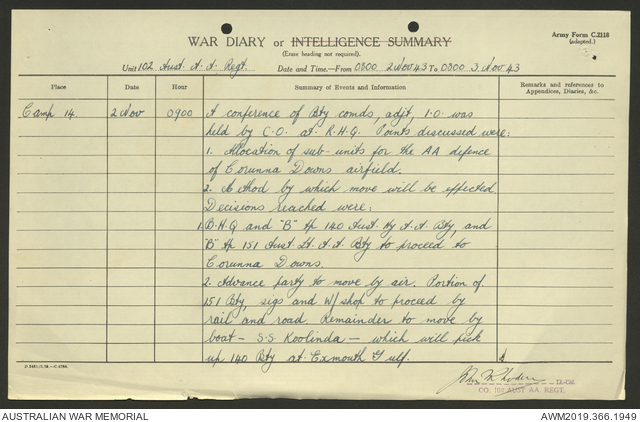 Army Form C.2118
(adapted.)
WAR DIARY or INTELLIGENCE SUMMARY
(Erase heading not required).
Unit 102 Aust. A.A. Regt. Date and Time—From 0800 2 Nov 43 To 0800 3 Nov 43
Place Date Hour Summary of Events and Information Remarks and references to Appendices, Diaries, &c.
Camp 14. 2 Nov 0900 A conference of Bty comds, adjt, I.O. was
held by C.O. at R.H.Q. Points discussed were:
1. Allocation of sub-units for the AA defence
of Corunna Downs airfield.
2. Method by which move will be effected
Decisions reached were:
1. B.H.Q and "B" Tp 140 Aust. Hy A.A. Bty, and
"B" Tp 151 Aust. Lt. A.A. Bty to proceed to
Corunna Downs.
2. Advance party to move by air. Portion of
151 Bty, sigs and W/shop to proceed by
rail and road. Remainder to move by
boat - S.S. Koolinda - which will pick
up 140 Bty at Exmouth Gulf.
Lt.-Col.
CO. 102 AUST AA. REGT.
AUSTRALIAN WAR MEMORIAL AWM2019.366.1949